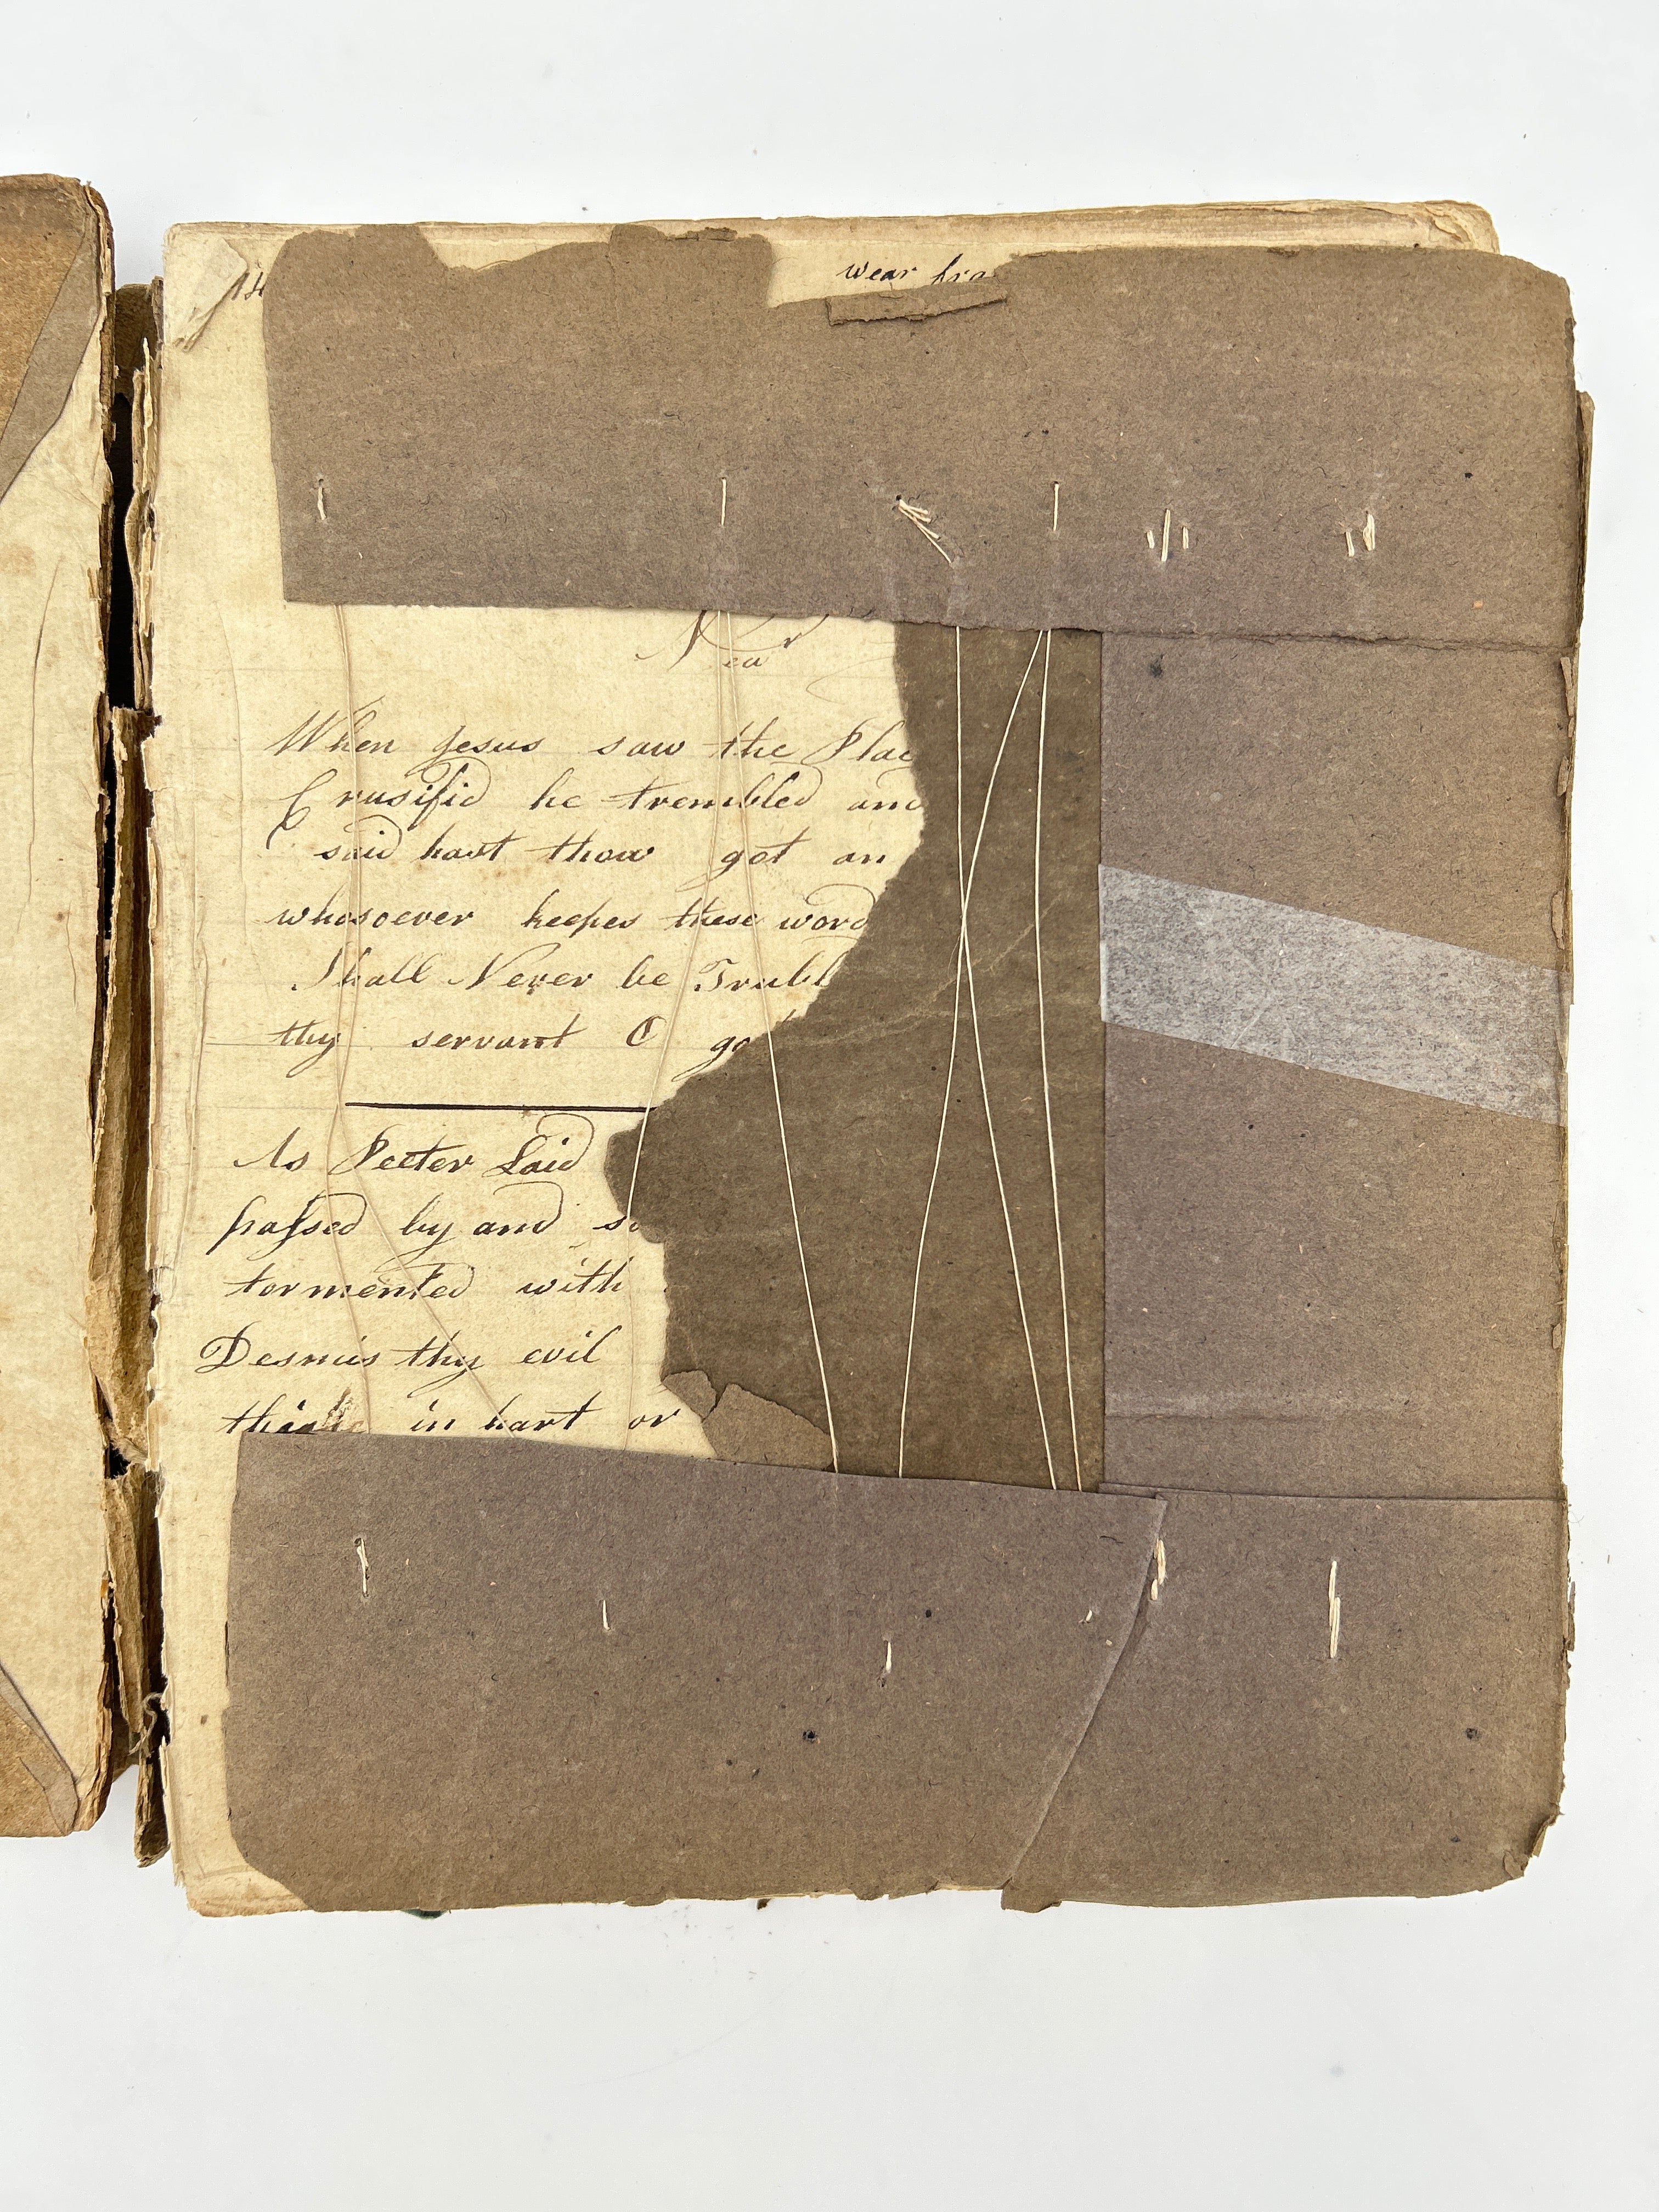 14
wear fro
Near
When Jesus saw the Plac
Crusifid he trembled and
said hast thow got an
whosoever keepes these word
Shall Never be Trubl
thy servant O go
As Peeter Laid
passed by and so
tormented with
Desmis thy evil
think in hart or